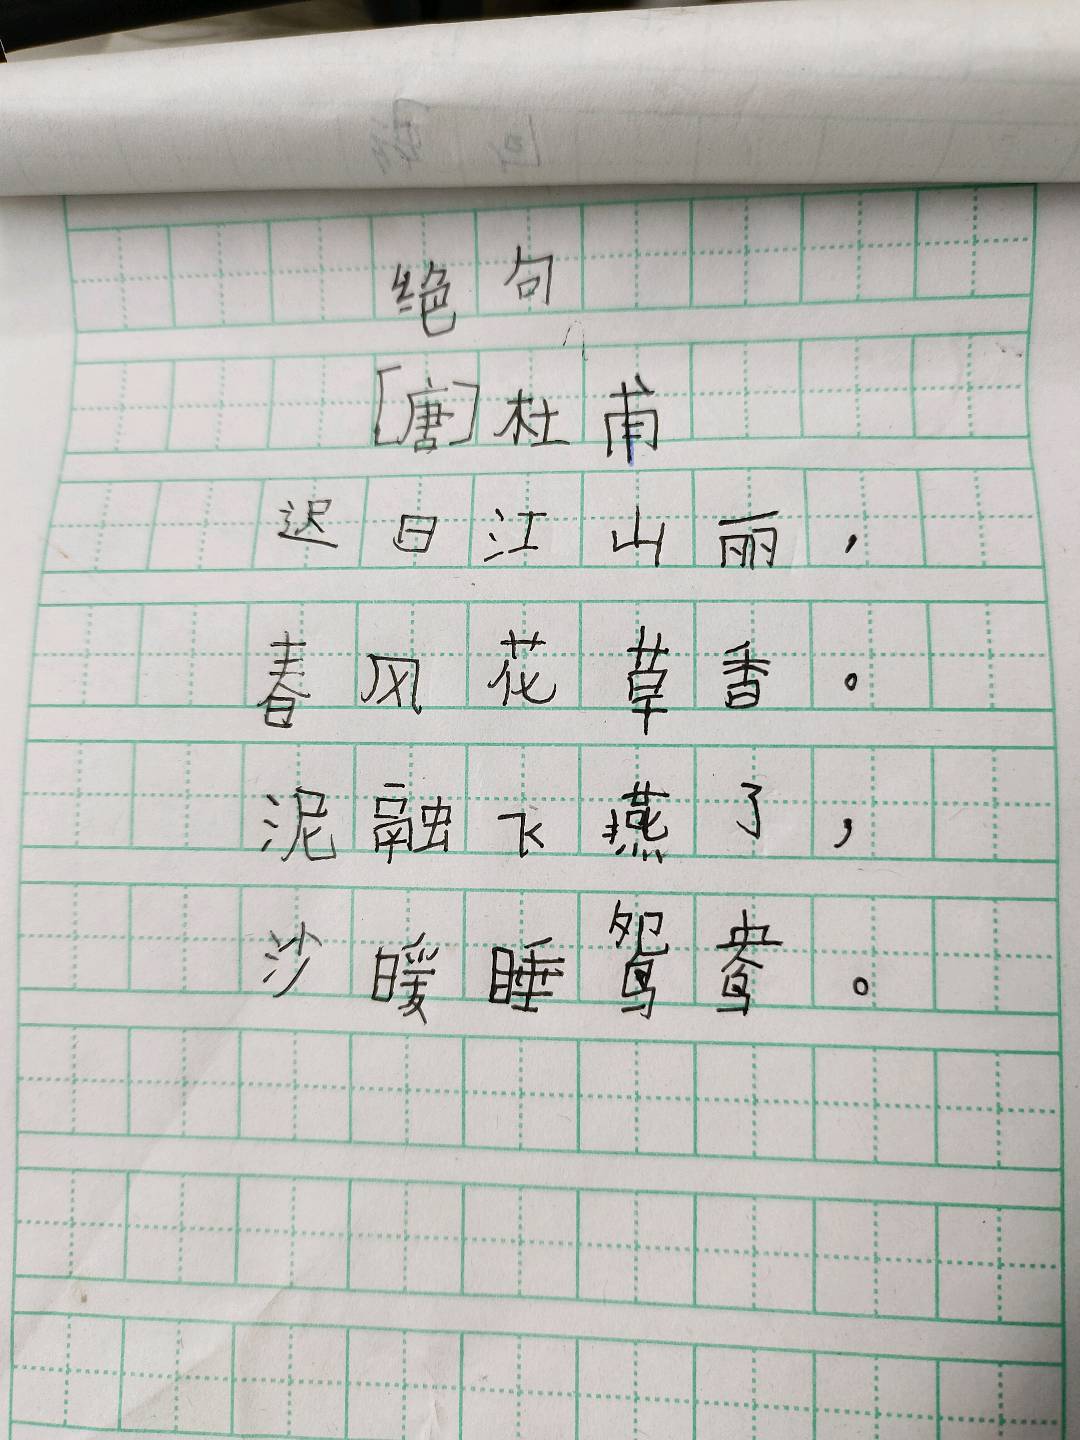 绝句
[唐]杜甫
迟日江山丽，
春风花草香。
泥融飞燕了，
沙暖睡鸳鸯。